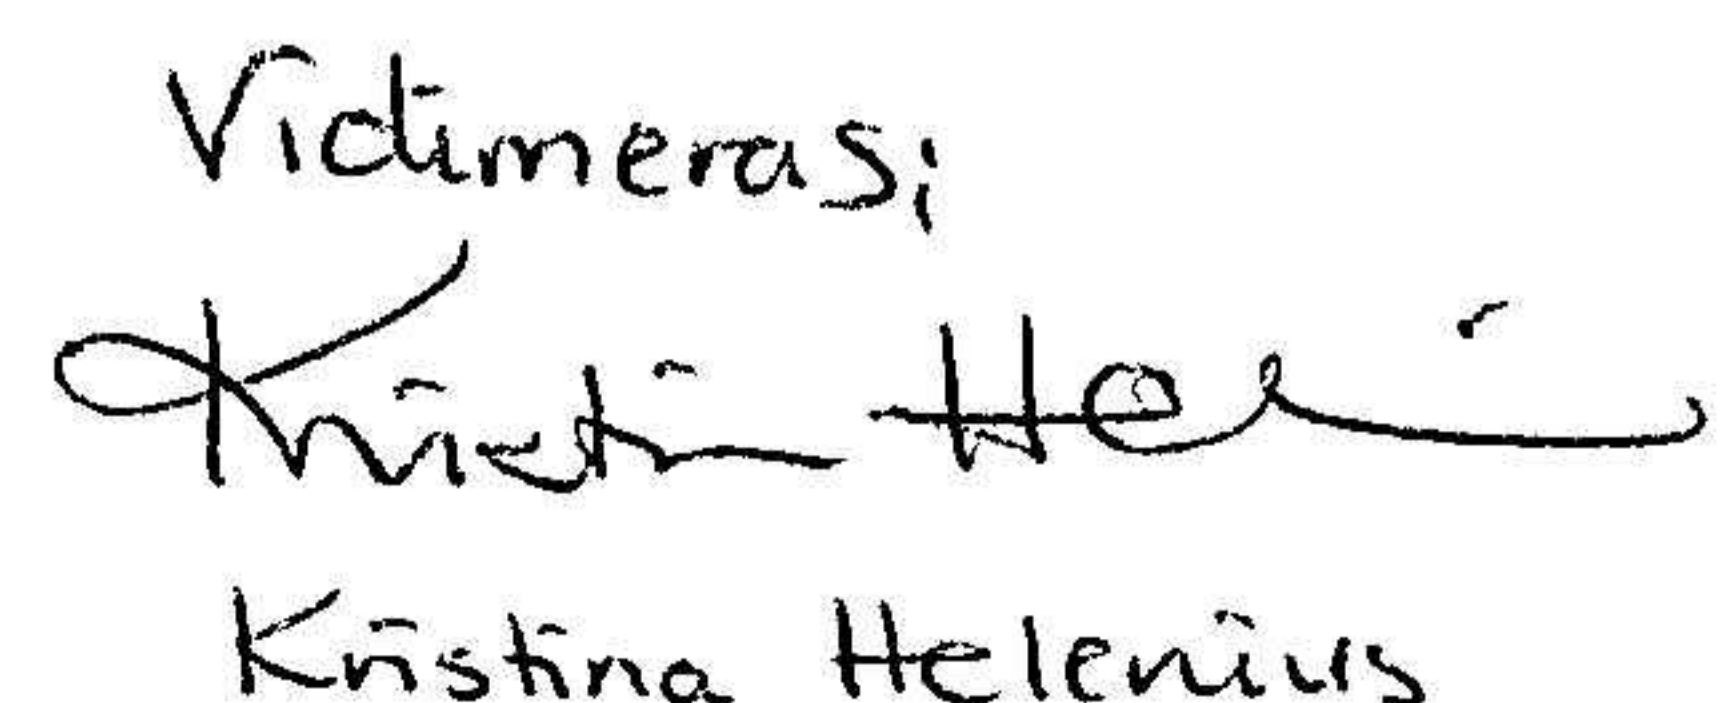 Vidimeras;
Kristin Hel
Kristina Helenius